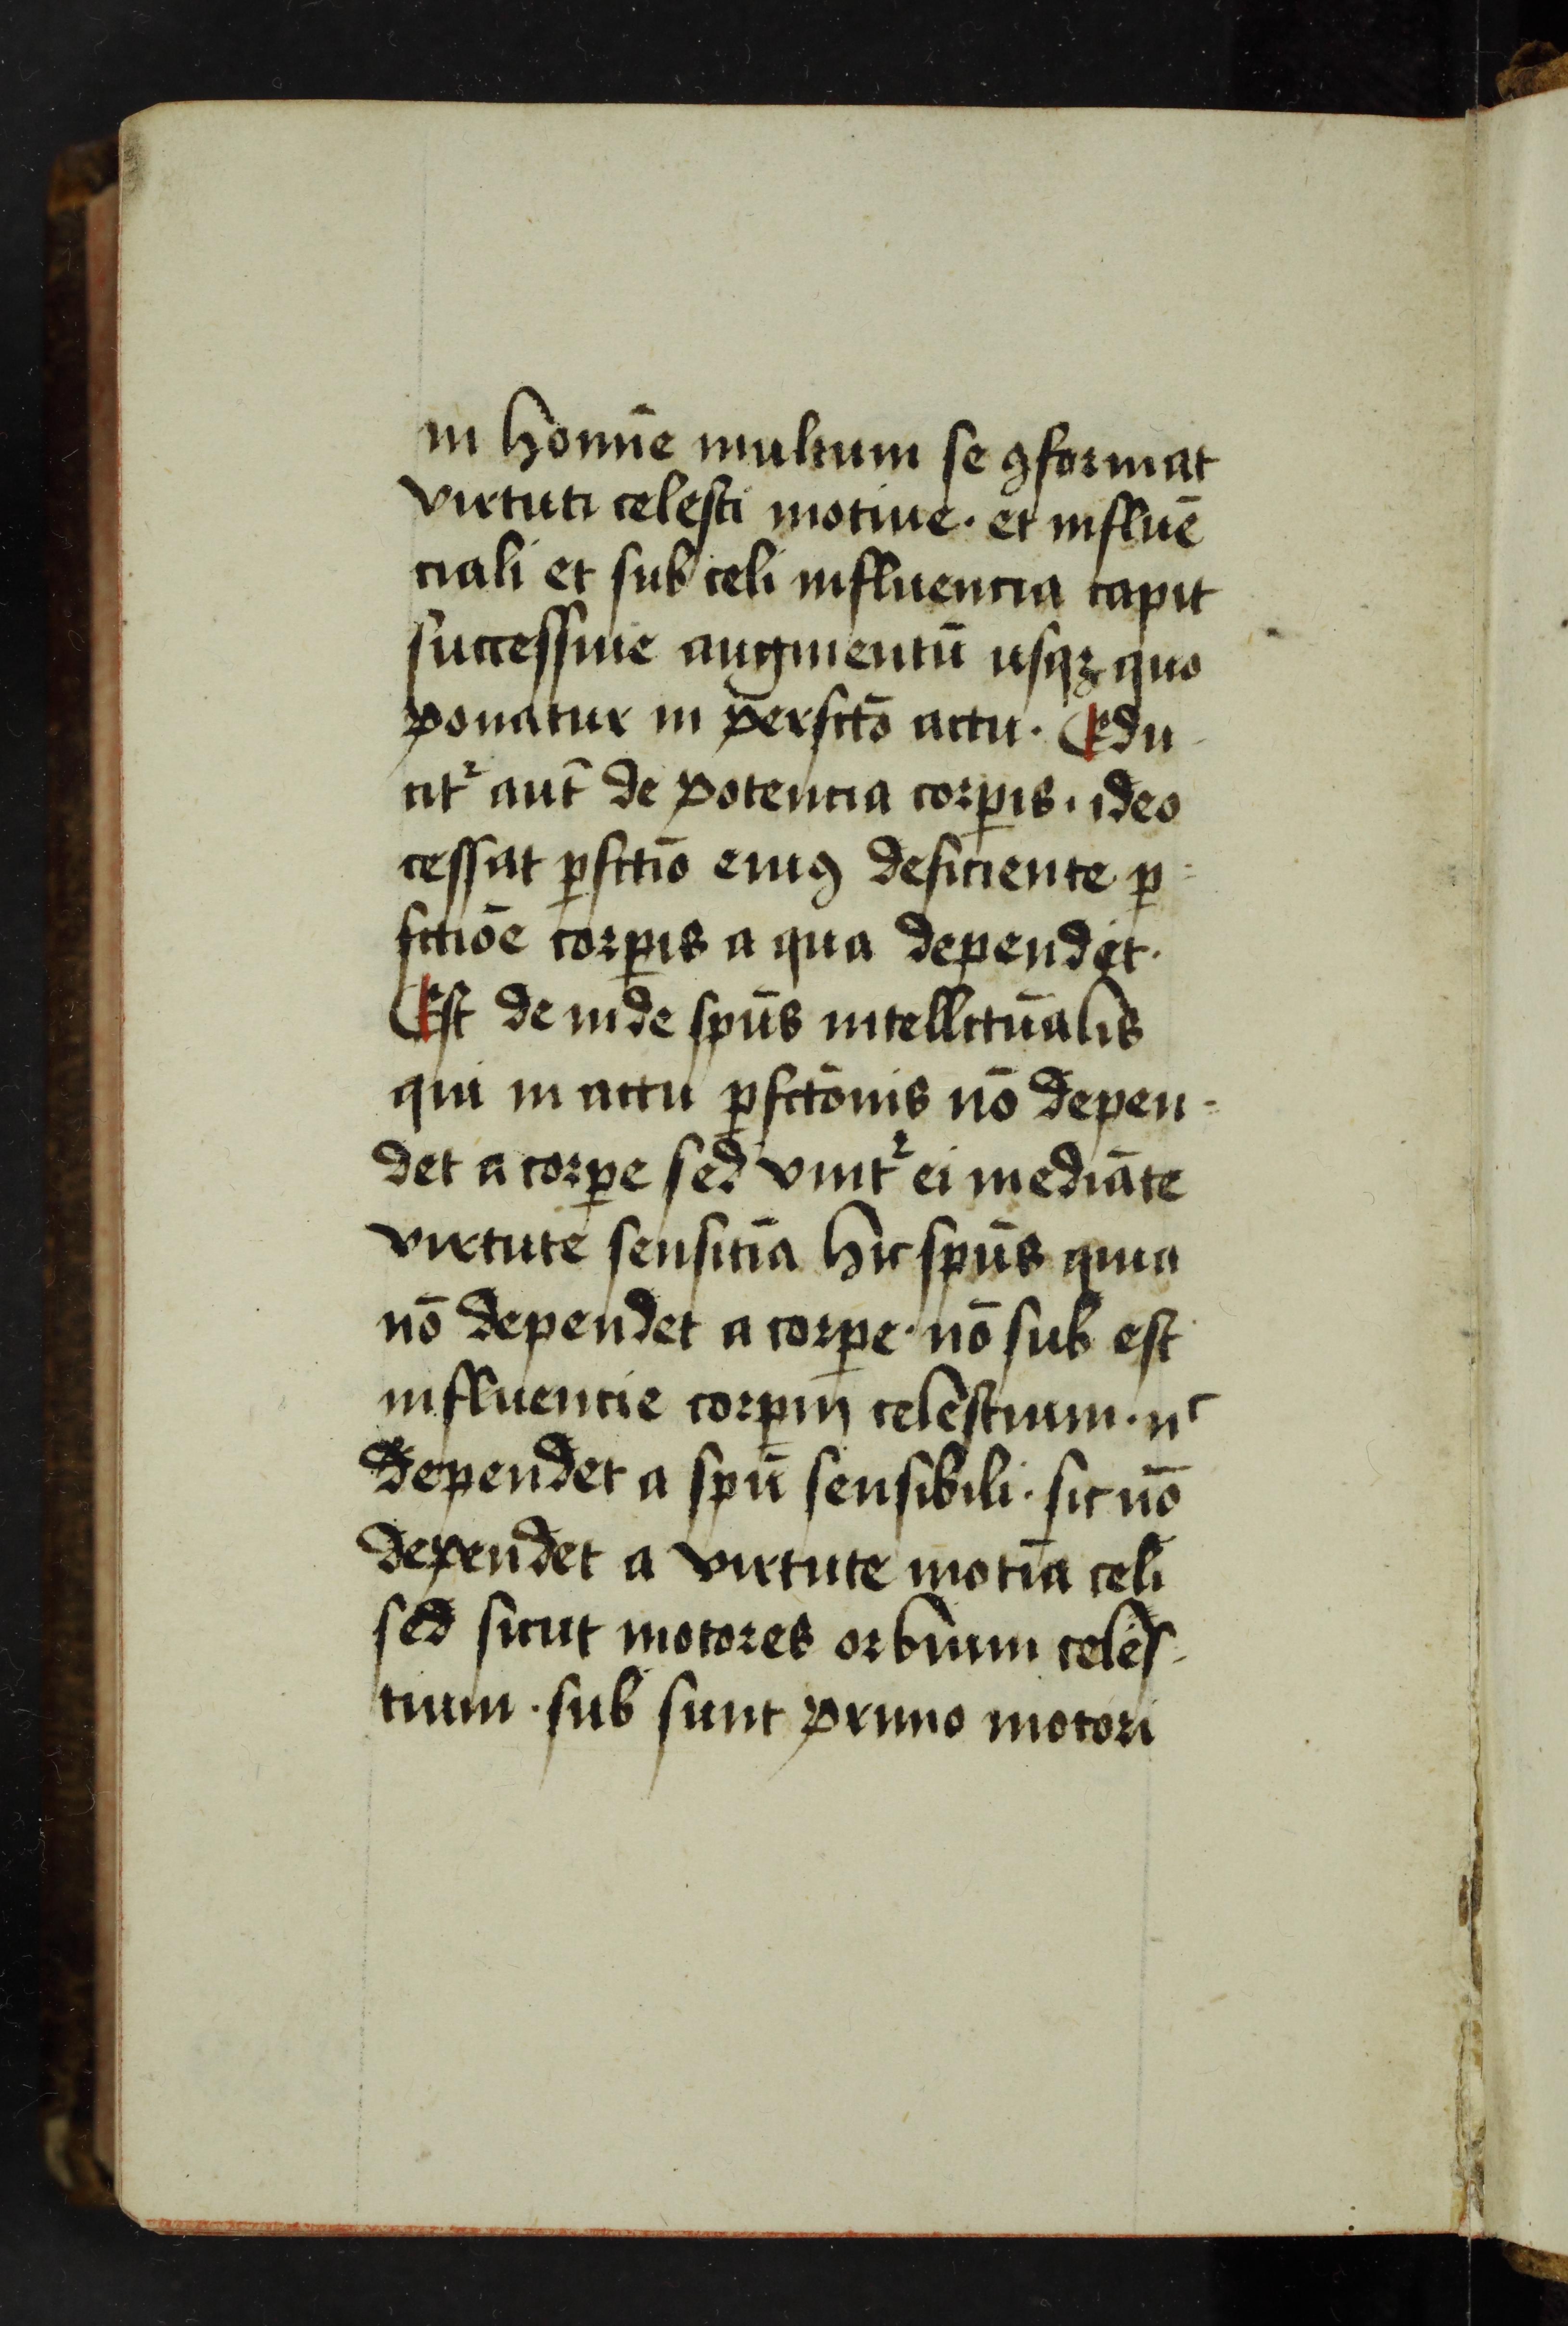 in homīe multum se ꝯformat
virtuti celesti motiue · et influē
ciali et sub celi influencia capit
successiue augmentū usqꝫ quo
ponatur in perfctō actu · Edu
citᷣ aut̄ de potencia corꝑis · ideo
cessat ꝑfctio eiꝰ deficiente ꝑ
fctiōe corꝑis a qua dependet ·
Est de inde spūs intellctūalis
qui in actu ꝑfctōnis nō depen
det a corꝑe sed vnitᷣ ei mediāte
virtute sensitīa hic spūs quia
nō dependet a corꝑe · nō sub est
influencie corꝑm celestium · nᶜ
dependet a spū sensibili · sic nō
dependet a virtute motīa celi
sed sicut motores orbium celes
tium · sub sunt primo motori